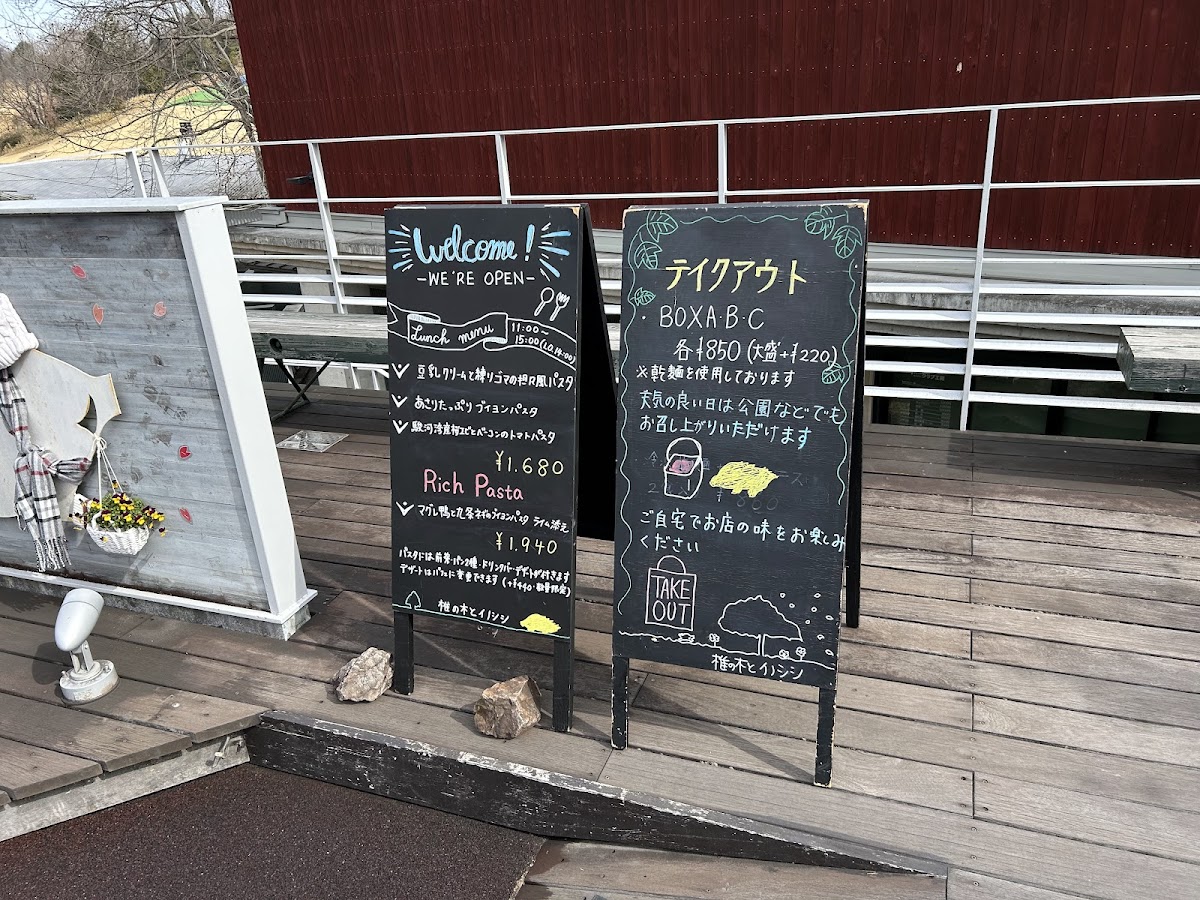 Welcome!
-WE'RE OPEN-
Lunch menu
11:00~
15:00(L.O.14:00)
豆乳クリームと練りゴマの担々風パスタ
あさりたっぷりブイヨンパスタ
駿河湾産桜エビとベーコンのトマトパスタ
¥1.680
Rich Pasta
マグレ鴨と九条ネギのブイヨンパスタ ライム添え
¥1.940
パスタには前菜・パン2種・ドリンクバー・デザートが付きます
デザートはパフェに変更できます(+¥440・数量限定)
椎の木とイノシシ
テイクアウト
BOXA・B・C
各¥850(大盛+¥220)
※乾麺を使用しております
天気の良い日は公園などでも
お召し上がりいただけます
ご自宅でお店の味をお楽しみ
ください
TAKE
OUT
椎の木とイノシシ